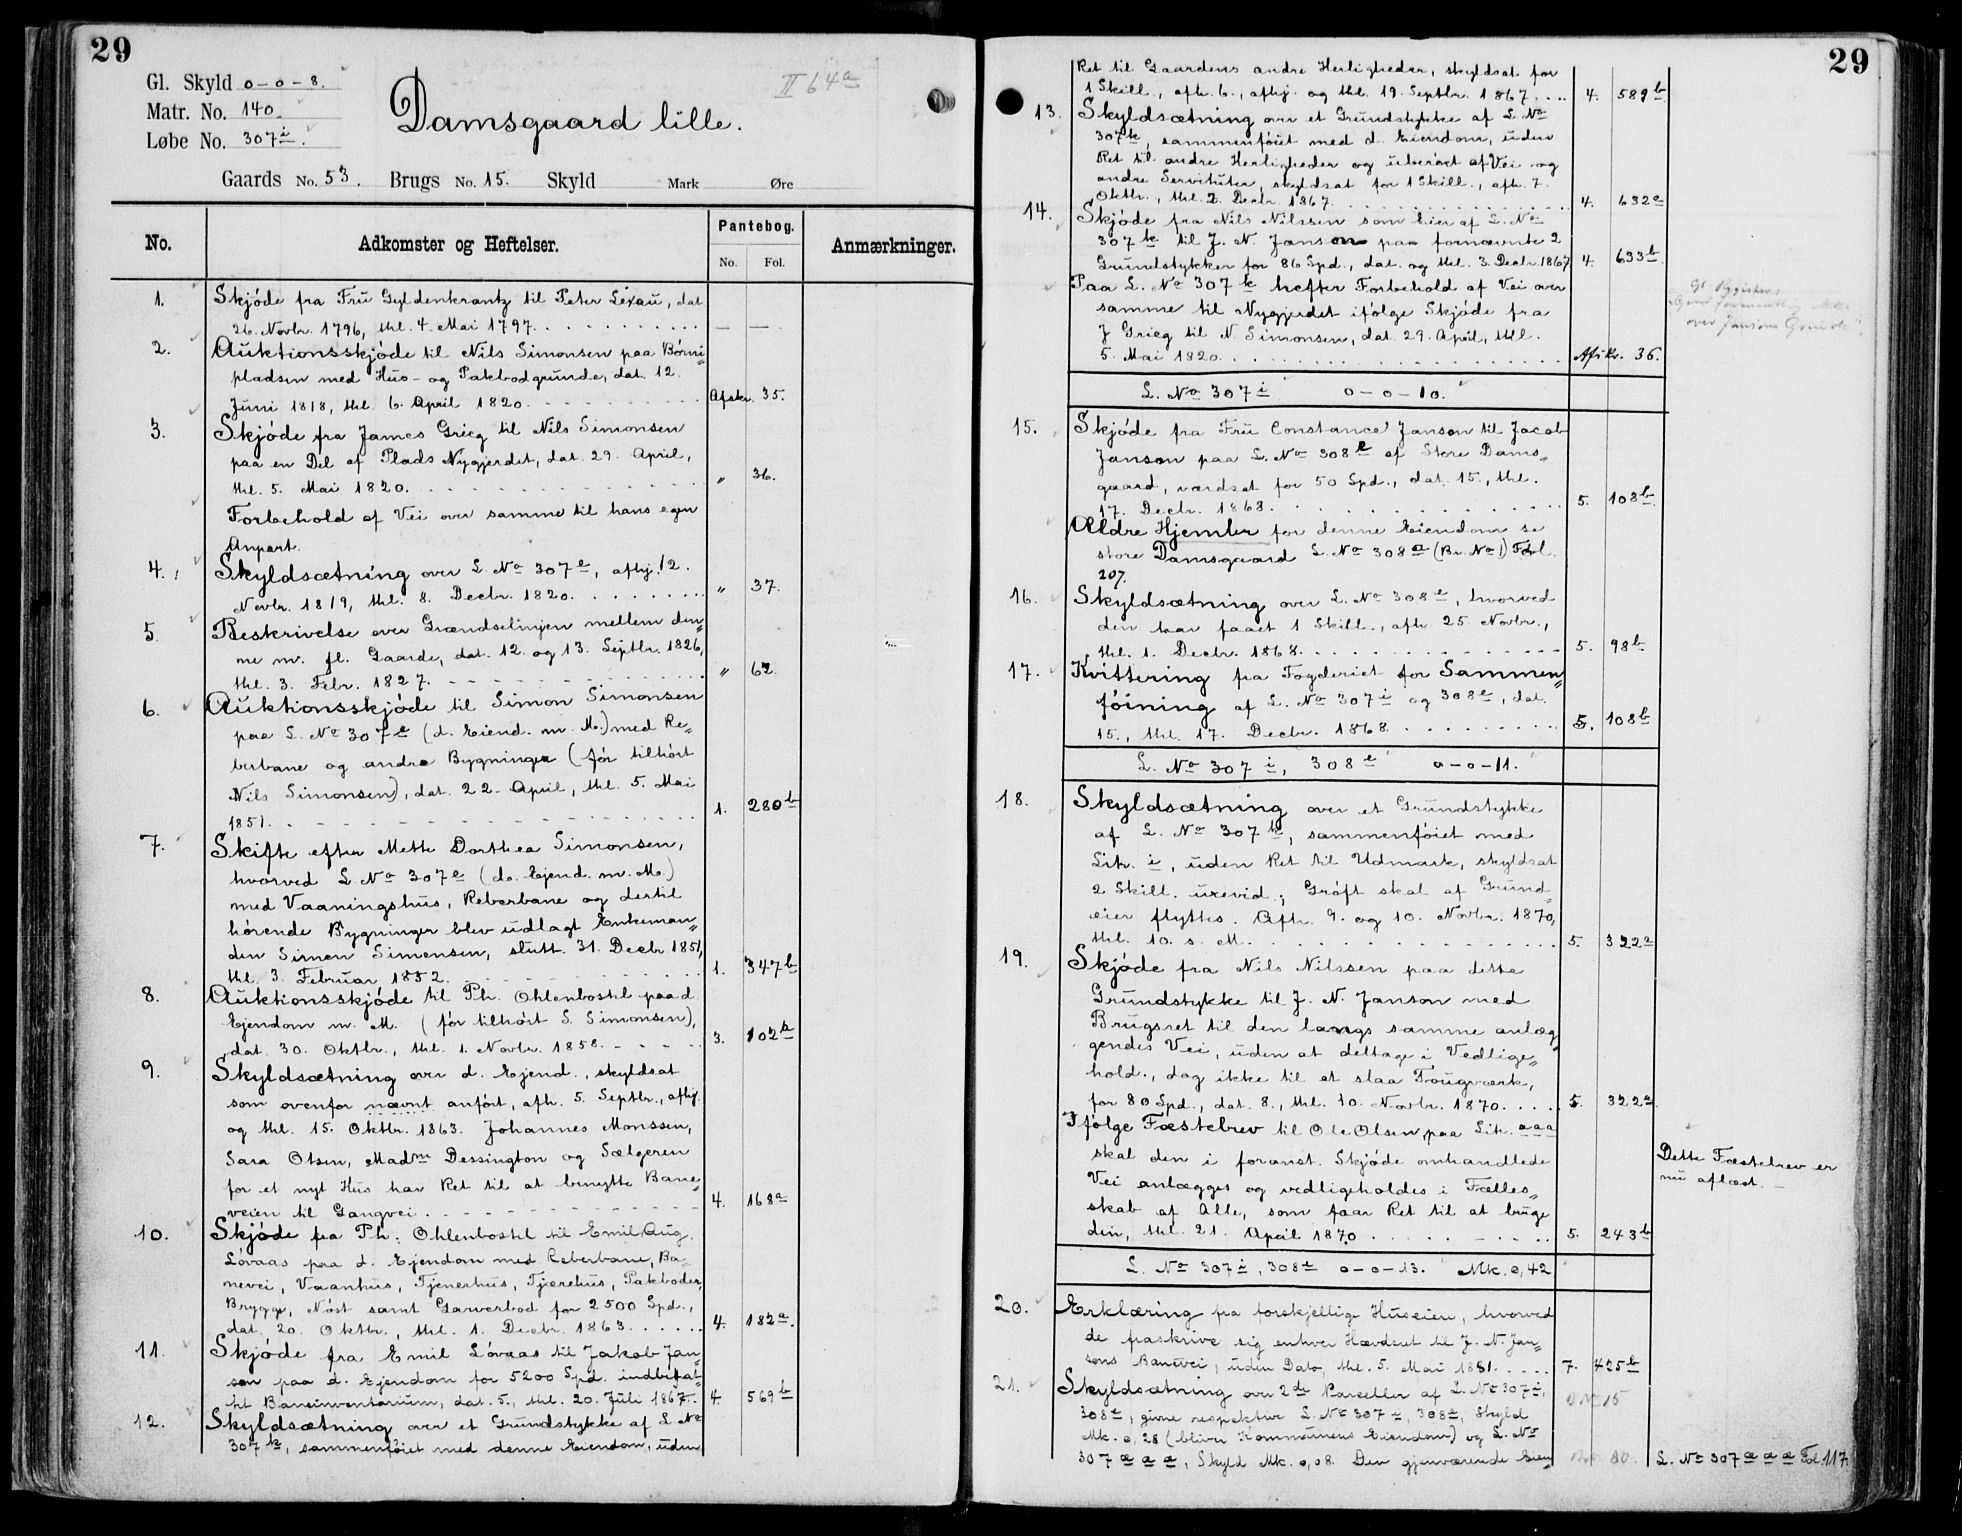 29
Gl. Skyld 0-0-8.
Matr. No. 140.
Løbe No. 307 i.
II 64a
Damsgaard lille.
Gaards No. 53. Brugs No. 15. Skyld Mark Øre
No.
Adkomster og Heftelser.
Pantebog.
No. Fol.
Anmærkninger.
1. Skjöde fra Fru Gyldenkrantz til Peter Lexau, dat
26. Novbr. 1796, thl. 4. Mai 1797. — —
2. Auktionsskjöde til Nils Simonsen paa Börni„
pladsen med Hus- og Pakbodgrunde, dat. 12.
Juni 1818, thl. 6. April 1820. Afskr. 35.
3. Skjöde fra James Grieg til Nils Simonsen
paa en Del af Plads Nygjerdet, dat. 29. April,
thl. 5. Mai 1820. „ 36.
Forbehold af Vei over samme til hans egen
Anpart.
4. Skyldsætning over L. No 307 e, afhj. 12.
Novbr. 1819, thl. 8. Decbr. 1820. „ 37.
5. Beskrivelse over Grændselinjen mellem den„
ne m. fl. Gaarde, dat. 12. og 13. Septbr. 1826,
thl. 3. Febr. 1827. „ 62.
6. Auktionsskjöde til Simon Simonsen
paa L. No 307 e (d. Eiend. m. M.) med Re„
berbane og andre Bygninger (för tilhört
Nils Simonsen), dat. 22. April, thl. 5. Mai
1851. 1. 280 b
7. Skifte efter Mette Dorthea Simonsen,
hvorved L No 307 e (d. Ejend. m. M.)
med Vaaningshus, Reberbane og dertil
hörende Bygninger blev udlagt Enkeman„
den Simen Simensen, slutt. 31. Decbr. 1851,
thl. 3. Februar 1852. 1. 347 b
8. Auktionsskjöde til Ph. Ohlenbostel paa d.
Ejendom m. M. (för tilhört S. Simonsen),
dat. 30. Oktbr., thl. 1. Novbr. 1858. 3. 102 b
9. Skyldsætning over d. Ejend., skyldsat
som ovenfor nævnt anfört, afh. 5. Septbr., afhj.
og thl. 15. Oktbr. 1863. Johannes Monssen,
Sara Olsen, Madm Dessington og Sælgeren
for et nyt Hus har Ret til at benytte Bane„
veien til Gangvei. 4. 168 a
10. Skjöde fra Ph. Ohlenbostel til Emil Aug.
Lövaas paa d. Ejendom med Reberbane, Ba„
nevei, Vaanhus, Tjenerhus, Tjærehus, Pakboder,
Brygge, Nöst samt Garverbod for 2500 Spd.,
dat. 20. Oktbr., thl. 1. Decbr. 1863. 4. 182 a.
11. Skjöde fra Emil Lövaas til Jakob Jan„
son paa d. Ejendom for 5200 Spd. indbefat„
tet Baneinventarium, dat. 5., thl. 20. Juli 1867. 4. 569 b
12. Skyldsætning over et Grundstykke af L. No
307 k, sammenföiet med denne Eiendom, uden
29
Ret til Gaardens andre Herligheder, skyldsat for
1 Skill., afh. 6., afhj. og thl. 19. Septbr. 1867. 4. 589 b
13. Skyldsætning over et Grundstykke af L. No
307 k, sammenföiet med d. Eiendom, uden
Ret til andre Herligheder og uberört af Vei og
andre Servituter, skyldsat for 1 Skill., afh. 7.
Oktbr., thl. 2. Decbr. 1867. 4. 632 a
14. Skjöde fra Nils Nilssen som Eier af L. No
307 k til J. N. Janson paa fornævnte 2
Grundstykker for 86 Spd., dat. og thl. 3. Decbr. 1867. 4. 633 b.
Paa L. No 307 k hefter Forbehold af Vei over
samme til Nygjerdet ifölge Skjöde fra
J Grieg til N. Simonsen, dat. 29. April, thl.
5. Mai 1820. Afskr. 36.
over Jansons
L. No 307 i 0-0-10.
15. Skjöde fra Fru Constance Janson til Jacob
Janson paa L. No 308 e af Store Dams„
gaard, værdsat for 50 Spd., dat. 15., thl.
17. Decbr. 1868. 5. 108 b.
Ældre Hjemler for denne Eiendom se
store Damsgaard L. No 308 a (Br. No 1) Fol.
207.
16. Skyldsætning over L. No 308 e, hvorved
den har faaet 1 Skill., afh. 25. Novbr.,
thl. 1. Decbr. 1868. 5. 98 b
17. Kvittering fra Fogderiet for Sammen„
föining af L. No 307 i og 308 e, dat.
15., thl. 17. Decbr. 1868. 5. 108 b
L. No 307 i, 308 e 0-0-11.
18. Skyldsætning over et Grundstykke
af L. No 307 k, sammenföiet med
Litr. i, uden Ret til Udmark, skyldsat
2 Skill. urevid.; Gröft skal af Grund„
eier flyttes. Afh. 9. og 10. Novbr. 1870,
thl. 10. s. M. 5. 322 a
19. Skjöde fra Nils Nilssen paa dette
Grundstykke til J. N. Janson med
Brugsret til den langs samme anlæg„
gendes Vei, uden at deltage i Vedlige„
hold., dog ikke til et staa Trougværk,
for 80 Spd., dat. 8., thl. 10. Novbr. 1870. 5. 322 a.
Ifölge Fæstebrev til Ole Olsen paa Litr. aaa
skal den i foranst. Skjöde omhandlede
Vei anlægges og vedligeholdes i Fælles„
skab af Alle, som faar Ret til at bruge
den, thl. 21. April 1870. 5. 243 b
Dette Fæstebrev er
nu aflæst. —
L. No 307 i, 308 e 0-0-13. Mk. 0,42
20. Erklæring fra forskjellige Huseiere, hvorved
de fraskrive sig enhver Hævdsret til J. N. Jan„
sons Banevei, uden Dato, thl. 5. Mai 1881. 7. 425 b
21. Skyldsætning over 2de Parceller af L. No 307 i,
308 e, givne respektive L. No 307 , 308 , Skyld
Mk. 0,28 (bliver Kommunens Eiendom) og L. No
307 æ æ æ, Skyld Mk. 0,08. Den gjenværende Eien„
L. No 307 æ æ æ Fol. 117.